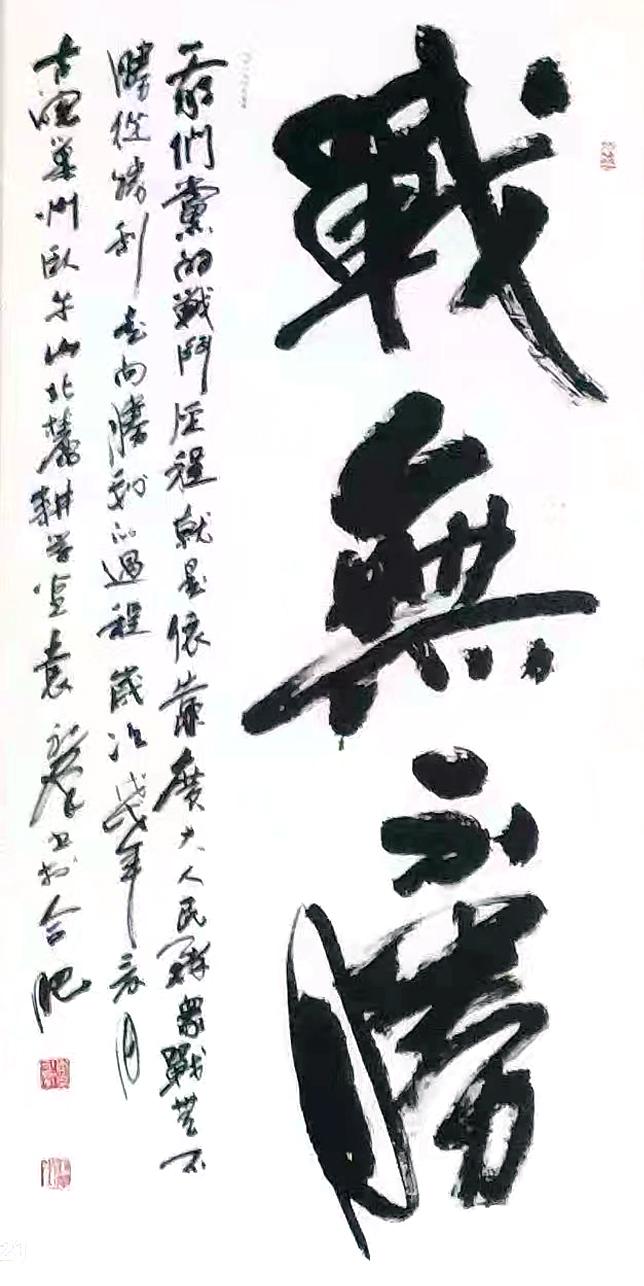 戰無不勝
我們黨的戰鬥歷程就是依靠廣大人民群衆戰無不
勝從勝利走向勝利的過程 歲次戊戌年 月
古廬 州臥牛山北麓耕 堂袁 書於合肥